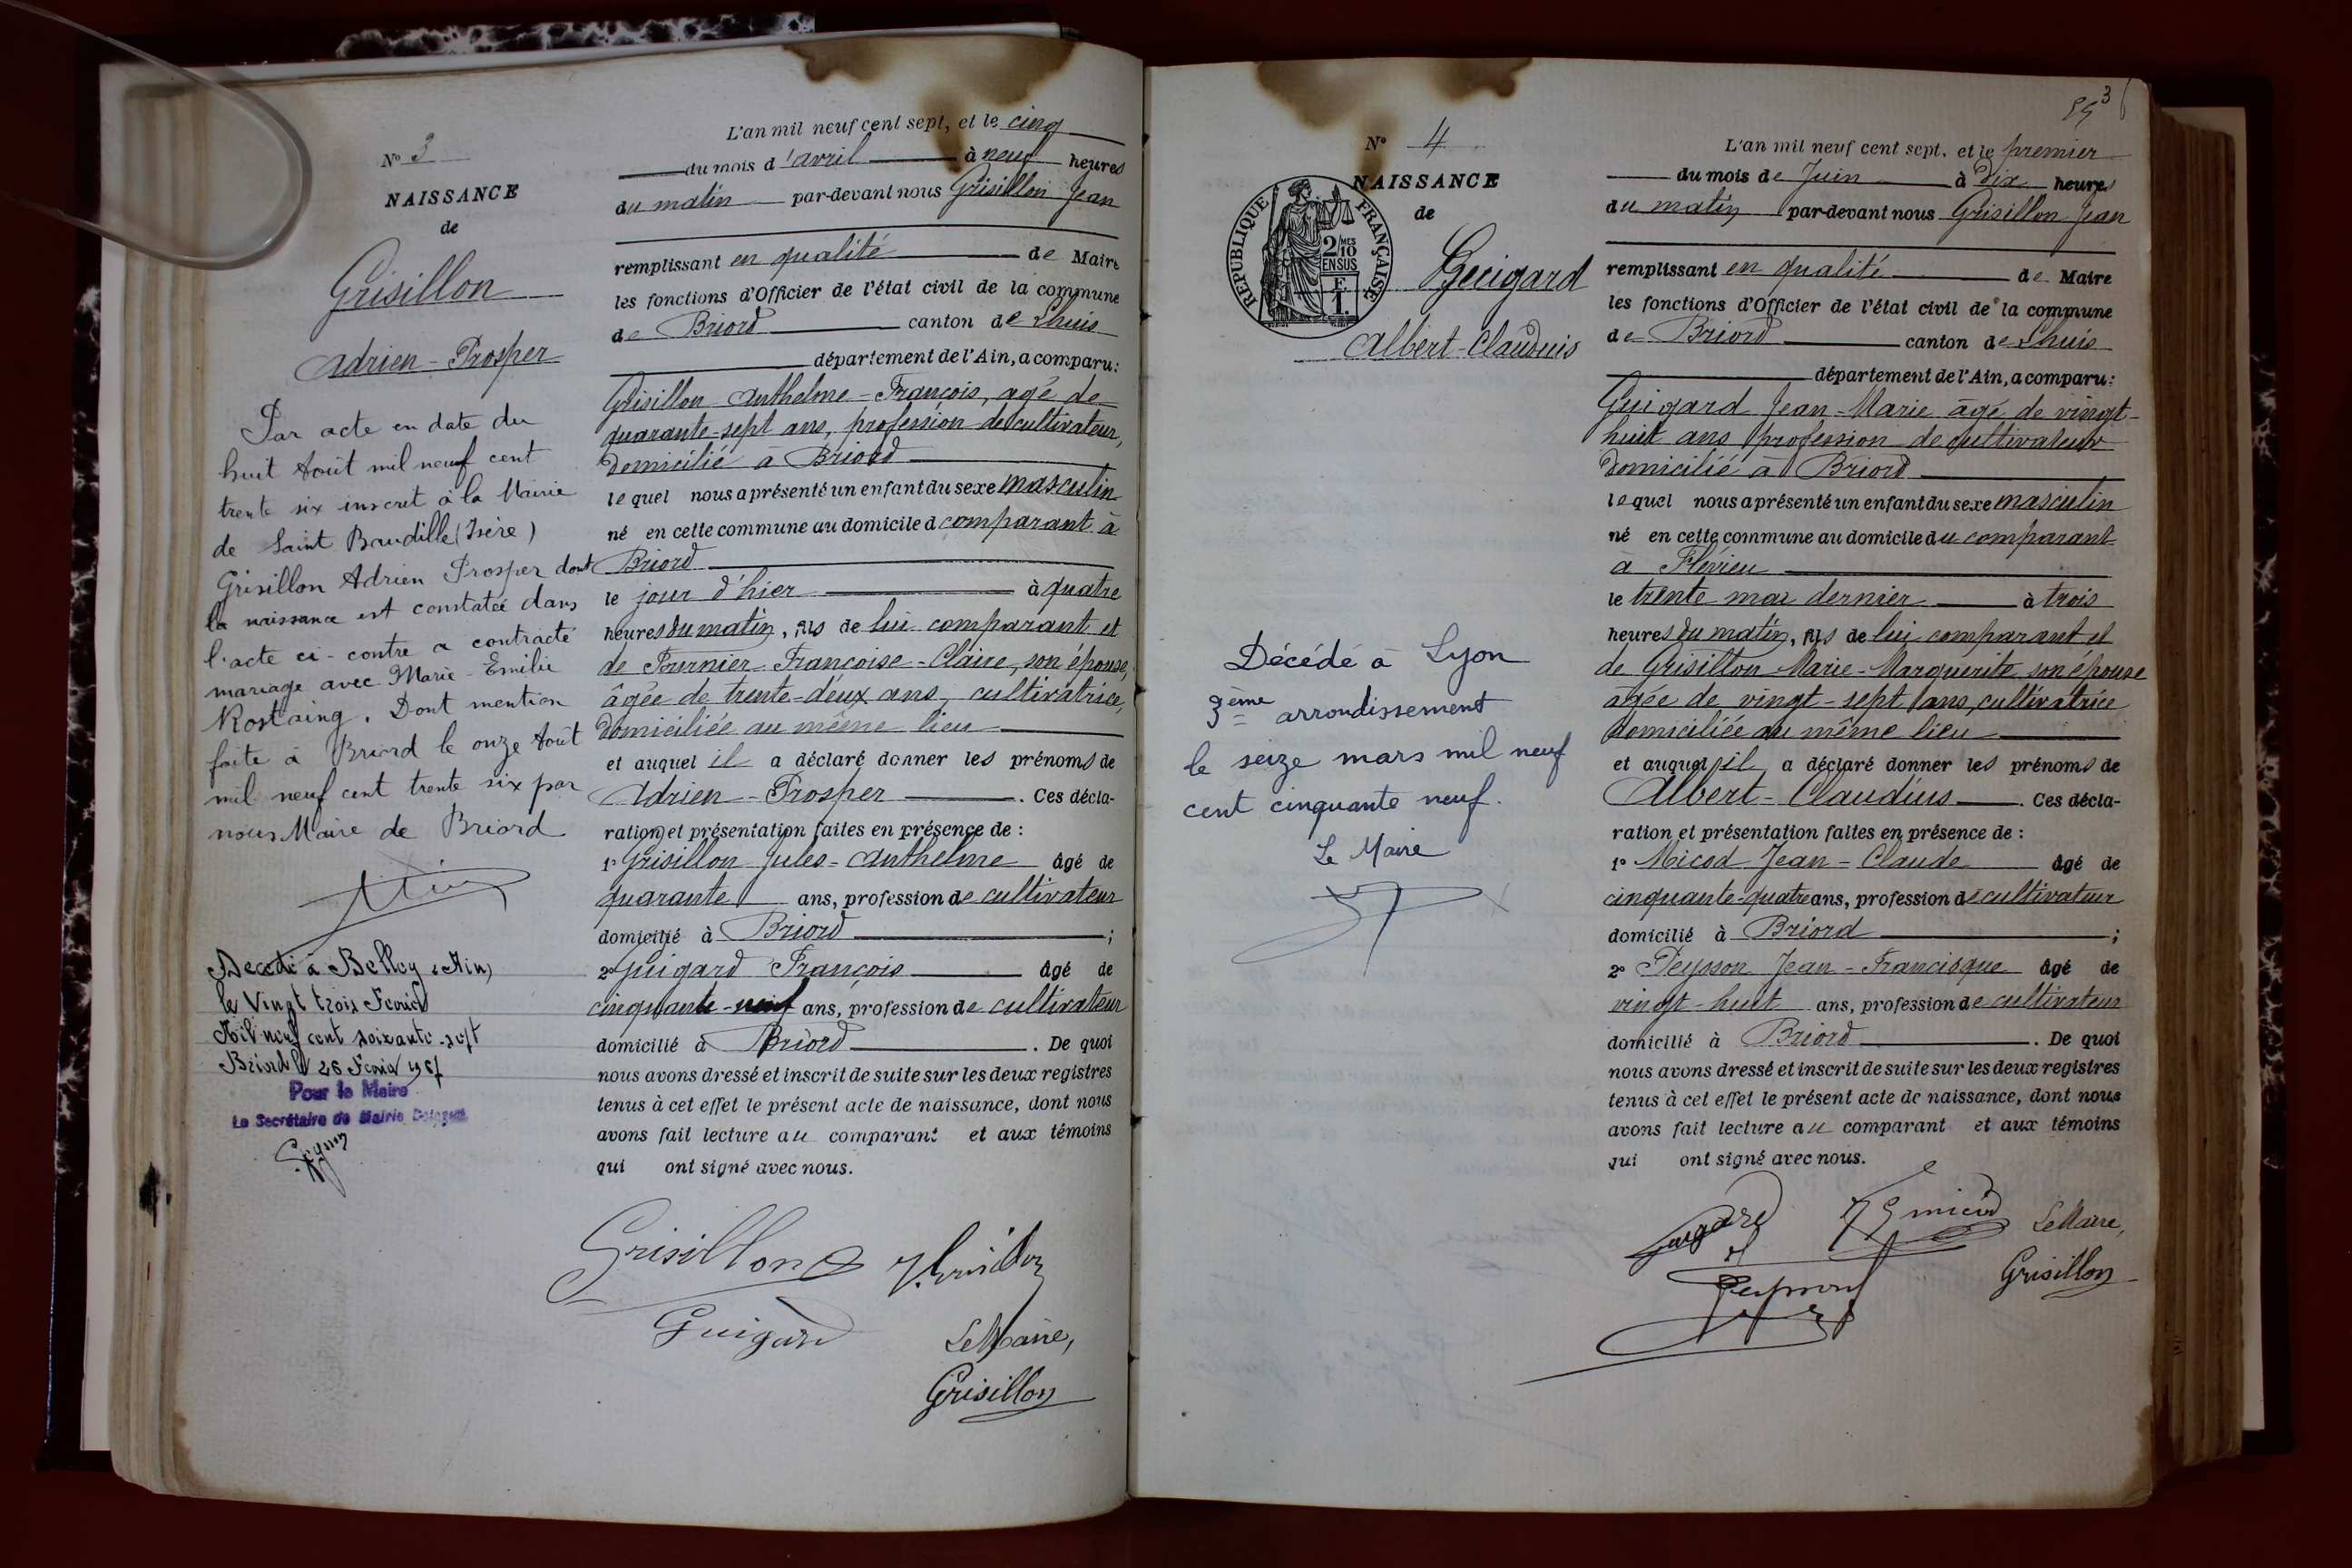 N° 3
NAISSANCE
de
Grisillon
Adrien - Prosper
Par acte en date du
huit Août mil neuf cent
trente six inscrit à la Mairie
de Saint Baudille (Isère)
Grisillon Adrien Prosper dont
la naissance est constatée dans
l'acte ci-contre a contracté
mariage avec Marie-Emilie
Rostaing. Dont mention
faite à Briord le onze Août
mil neuf cent trente six par
nous Maire de Briord
Décédé à Belley (Ain)
le Vingt trois Février
Mil neuf cent soixante-sept
Briord le 26 Février 1967
Pour le Maire
Le Secrétaire de Mairie
L'an mil neuf cent sept, et le cinq
du mois d'avril à neuf heures
du matin par-devant nous Grisillon Jean
remplissant en qualité de Maire
les fonctions d'Officier de l'état civil de la commune
de Briord canton de Lhuis
département de l'Ain, a comparu:
Grisillon Anthelme-François, agé de
quarante-sept ans, profession de cultivateur,
domicilié a Briord
lequel nous a présenté un enfant du sexe masculin
né en cette commune au domicile d comparant à
Briord
le jour d'hier à quatre
heures du matin, fils de lui comparant et
de Fournier Françoise-Claire, son épouse,
âgée de trente-deux ans, cultivatrice,
domiciliée au même lieu
et auquel il a déclaré donner les prénoms de
Adrien - Prosper. Ces décla-
ration et présentation faites en présence de :
1° Grisillon Jules-Anthelme âgé de
quarante ans, profession de cultivateur
domicilié à Briord ;
2° Guigard François âgé de
cinquante-neuf ans, profession de cultivateur
domicilié à Briord. De quoi
nous avons dressé et inscrit de suite sur les deux registres
tenus à cet effet le présent acte de naissance, dont nous
avons fait lecture au comparant et aux témoins
qui ont signé avec nous.
Grisillon J. Grisillon
Guigard Le Maire,
Grisillon
3
N° 4
NAISSANCE
de
REPUBLIQUE FRANÇAISE
2/10 MES
EN SUS
F.
1.
Guigard
Albert-Claudius
Décédé à Lyon
3ème arrondissement
le seize mars mil neuf
cent cinquante neuf.
Le Maire
L'an mil neuf cent sept, et le premier
du mois de Juin à dix heures
du matin par-devant nous Grisillon Jean
remplissant en qualité de Maire
les fonctions d'Officier de l'état civil de la commune
de Briord canton de Lhuis
département de l'Ain, a comparu:
Guigard Jean-Marie âgé de vingt-
huit ans profession de cultivateur
domicilié à Briord
lequel nous a présenté un enfant du sexe masculin
né en cette commune au domicile du comparant
à Flévieu
le trente mai dernier à trois
heures du matin, fils de lui comparant et
de Grisillon Marie-Marguerite son épouse
âgée de vingt-sept ans, cultivatrice
domiciliée au même lieu
et auquel il a déclaré donner les prénoms de
Albert-Claudius. Ces décla-
ration et présentation faites en présence de :
1° Micod Jean-Claude âgé de
cinquante-quatre ans, profession de cultivateur
domicilié à Briord ;
2° Peysson Jean-Francisque âgé de
vingt-huit ans, profession de cultivateur
domicilié à Briord. De quoi
nous avons dressé et inscrit de suite sur les deux registres
tenus à cet effet le présent acte de naissance, dont nous
avons fait lecture au comparant et aux témoins
qui ont signé avec nous.
Guigard Micod Le Maire,
Peysson Grisillon